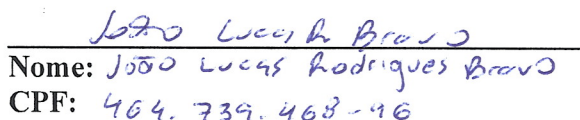 João Lucas R Bravo
Nome: João Lucas Rodrigues Bravo
CPF: 464.739.468-96